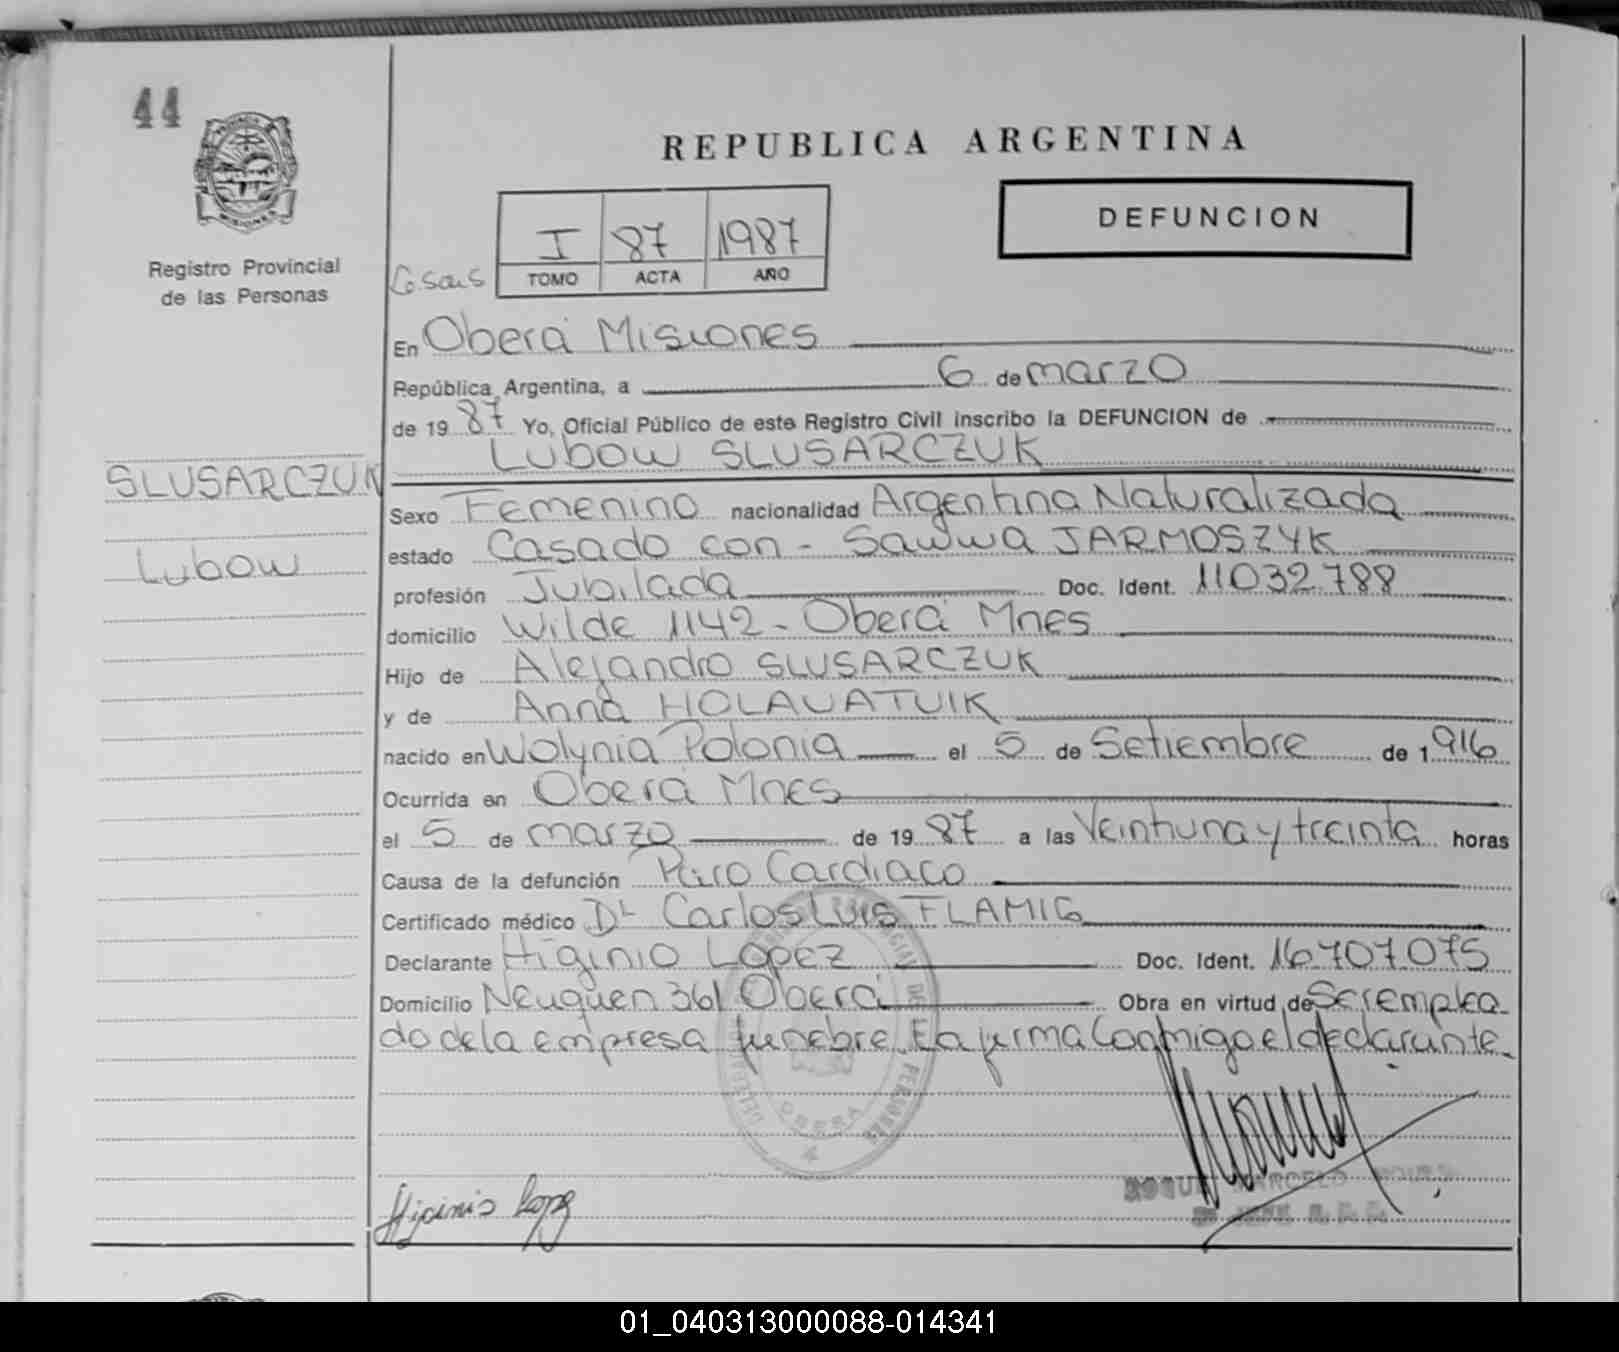 44
REPUBLICA ARGENTINA
PROVINCIA
MISIONES
Registro Provincial
de las Personas
I 87 1987
TOMO ACTA AÑO
DEFUNCION
En Oberá Misiones
República Argentina, a 6 de marzo
de 19 87 Yo, Oficial Público de este Registro Civil inscribo la DEFUNCION de
Lubow SLUSARCZUK
SLUSARCZUK
Lubow
Sexo Femenino nacionalidad Argentina Naturalizada
estado Casado con - Sawwa JARMOSZYK
profesión Jubilada Doc. Ident. 11032.788
domicilio Wilde 1142 - Oberá Mnes
Hijo de Alejandro SLUSARCZUK
y de Anna HOLAUATUIK
nacido en Wolynia Polonia el 5 de Setiembre de 1916
Ocurrida en Oberá Mnes
el 5 de marzo de 19 87 a las Veintiuna y treinta horas
Causa de la defunción Paro Cardiaco
Certificado médico Dr Carlos Luis FLAMIG
Declarante Higinio LOPEZ Doc. Ident. 16707.075
Domicilio Neuquen 361 Oberá Obra en virtud de Ser emplea-
do de la empresa funebre. Ea firma Conmigo el declarante.
OBERA
Higinio Lopez
ROQUE MARCELO
01_040313000088-014341